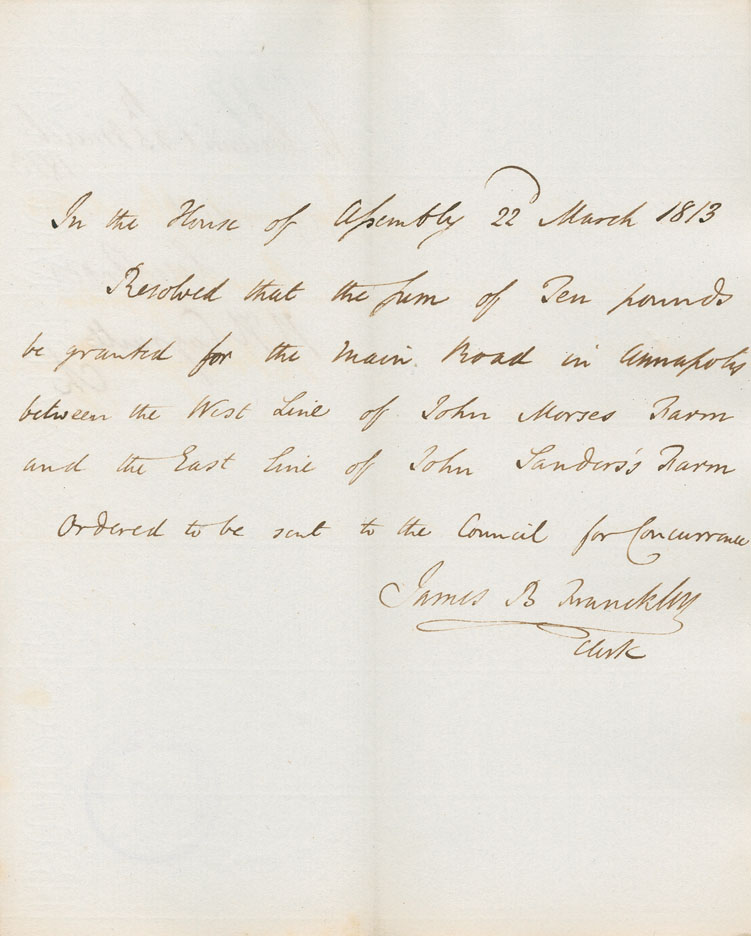 In the House of Assembly 22d March 1813
Resolved that the sum of Ten pounds
be granted for the Main Road in Annapolis
between the West Line of John Morses Farm
and the East line of John Sanders's Farm
Ordered to be sent to the Council for Concurrence
James B Franckliy
Clerk